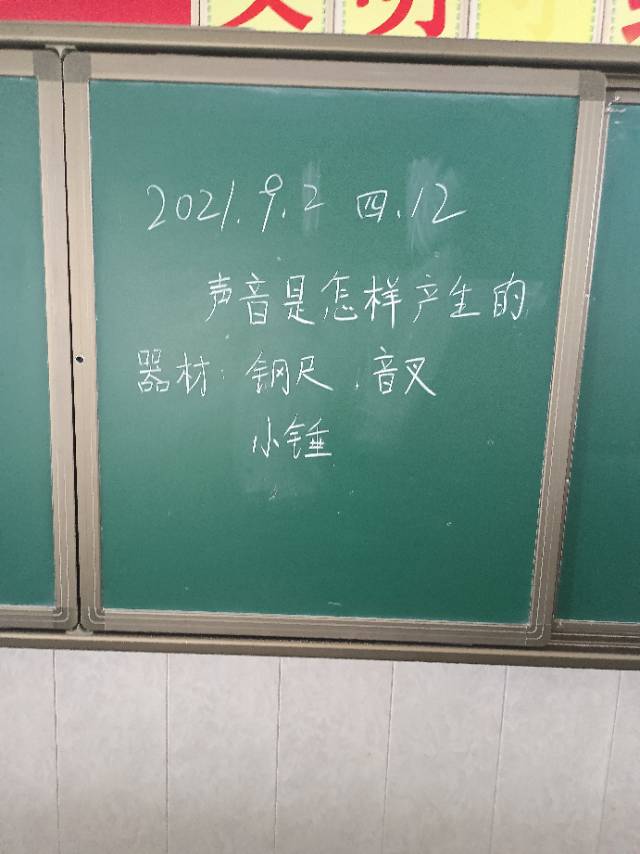 2021.9.2 四.12
声音是怎样产生的
器材：钢尺、音叉
小锤